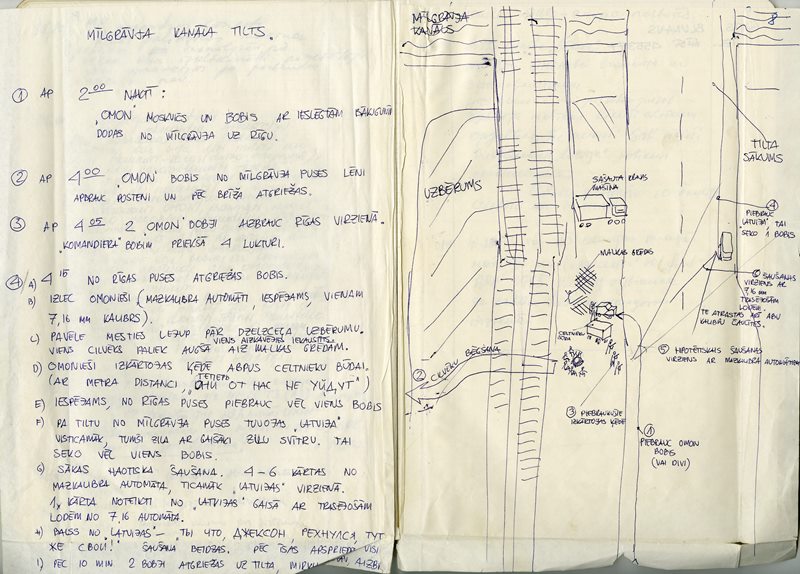 MĪLGRĀVJA KANĀLA TILTS.
① AP 2⁰⁰ NAKTĪ:
"OMON" MOSKVIČS UN BOBIS AR IESLĒGTĀM BĀKUGUNĪM
DODAS NO MĪLGRĀVJA UZ RĪGU.
② AP 4⁰⁰ "OMON" BOBIS NO MĪLGRĀVJA PUSES LĒNI
APBRAUC POSTENI UN PĒC BRĪŽA ATGRIEŽAS.
③ AP 4⁰⁵ 2 "OMON" BOBJI AIZBRAUC RĪGAS VIRZIENĀ.
"KOMANDIERA" BOBIM PRIEKŠĀ 4 LUKTURI.
④ A) 4¹⁵ NO RĪGAS PUSES ATGRIEŽAS BOBIS.
B) IZLEC OMONIEŠI (MAZKALIBRA AUTOMĀTI, IESPĒJAMS, VIENAM
7,16 MM KALIBRS).
C) PAVĒLE MESTIES LEJUP PĀR DZELZCEĻA UZBĒRUMU.
VIENS AIZKAVĒJIES IEKAUSTĪTS.
VIENS CILVĒKS PALIEK AUGŠĀ AIZ MALKAS GRĒDĀM.
D) OMONIEŠI IZKĀRTOJAS ĶĒDĒ ABPUS CELTNIEKU BŪDAI.
(AR METRA DISTANCI, "ТЕПЕРЬ ОНИ ОТ НАС НЕ УЙДУТ")
E) IESPĒJAMS, NO RĪGAS PUSES PIEBRAUC VĒL VIENS BOBIS
F) PA TILTU NO MĪLGRĀVJA PUSES TUVOJAS "LATVIJA"
VISTICAMĀK, TUMŠI ZILA AR GAIŠĀKI ZILU SVĪTRU. TAI
SEKO VĒL VIENS BOBIS.
G) SĀKAS HAOTISKA ŠAUŠANA. 4-6 KĀRTAS NO
MAZKALIBRA AUTOMĀTA, TICAMĀK "LATVIJAS" VIRZIENĀ.
1x KĀRTA NOTEIKTI NO "LATVIJAS" GAISĀ AR TRASĒJOŠĀM
LODĒM NO 7,16 AUTOMĀTA.
H) BALSS NO "LATVIJAS" – "ТЫ ЧТО, ДЖЕКСОН, РЕХНУЛСЯ, ТУТ
ЖЕ СВОИ!" ŠAUŠANA BEIDZAS. PĒC ĪSAS APSPRIEDES VISI
I) PĒC 10 MIN 2 BOBJI ATGRIEŽAS UZ TILTA,
MĪLGRĀVJA
KANĀLS
8
TILTA
SĀKUMS
UZBĒRUMS
SAŠAUTĀ KRAVAS
MAŠĪNA
④
PIEBRAUC
"LATVIJA" TAI
SEKO 1 BOBIS
MALKAS GRĒDAS
⑥ ŠAUŠANAS
VIRZIENS AR
7,16 MM
TRASĒJOŠĀM
LODĒM.
TE ATRASTAS ARĪ ABU
KALIBRU ČAULĪTES.
CELTNIEKU
BŪDA
② CILVĒKU BĒGŠANA
⑤ HIPOTĒTISKAIS ŠAUŠANAS
VIRZIENS AR MAZKALIBRA AUTOMĀTIEM
③ PIEBRAUKUŠIE
IZKĀRTOJAS ĶĒDĒ
①
PIEBRAUC OMON
BOBIS
(VAI DIVI)